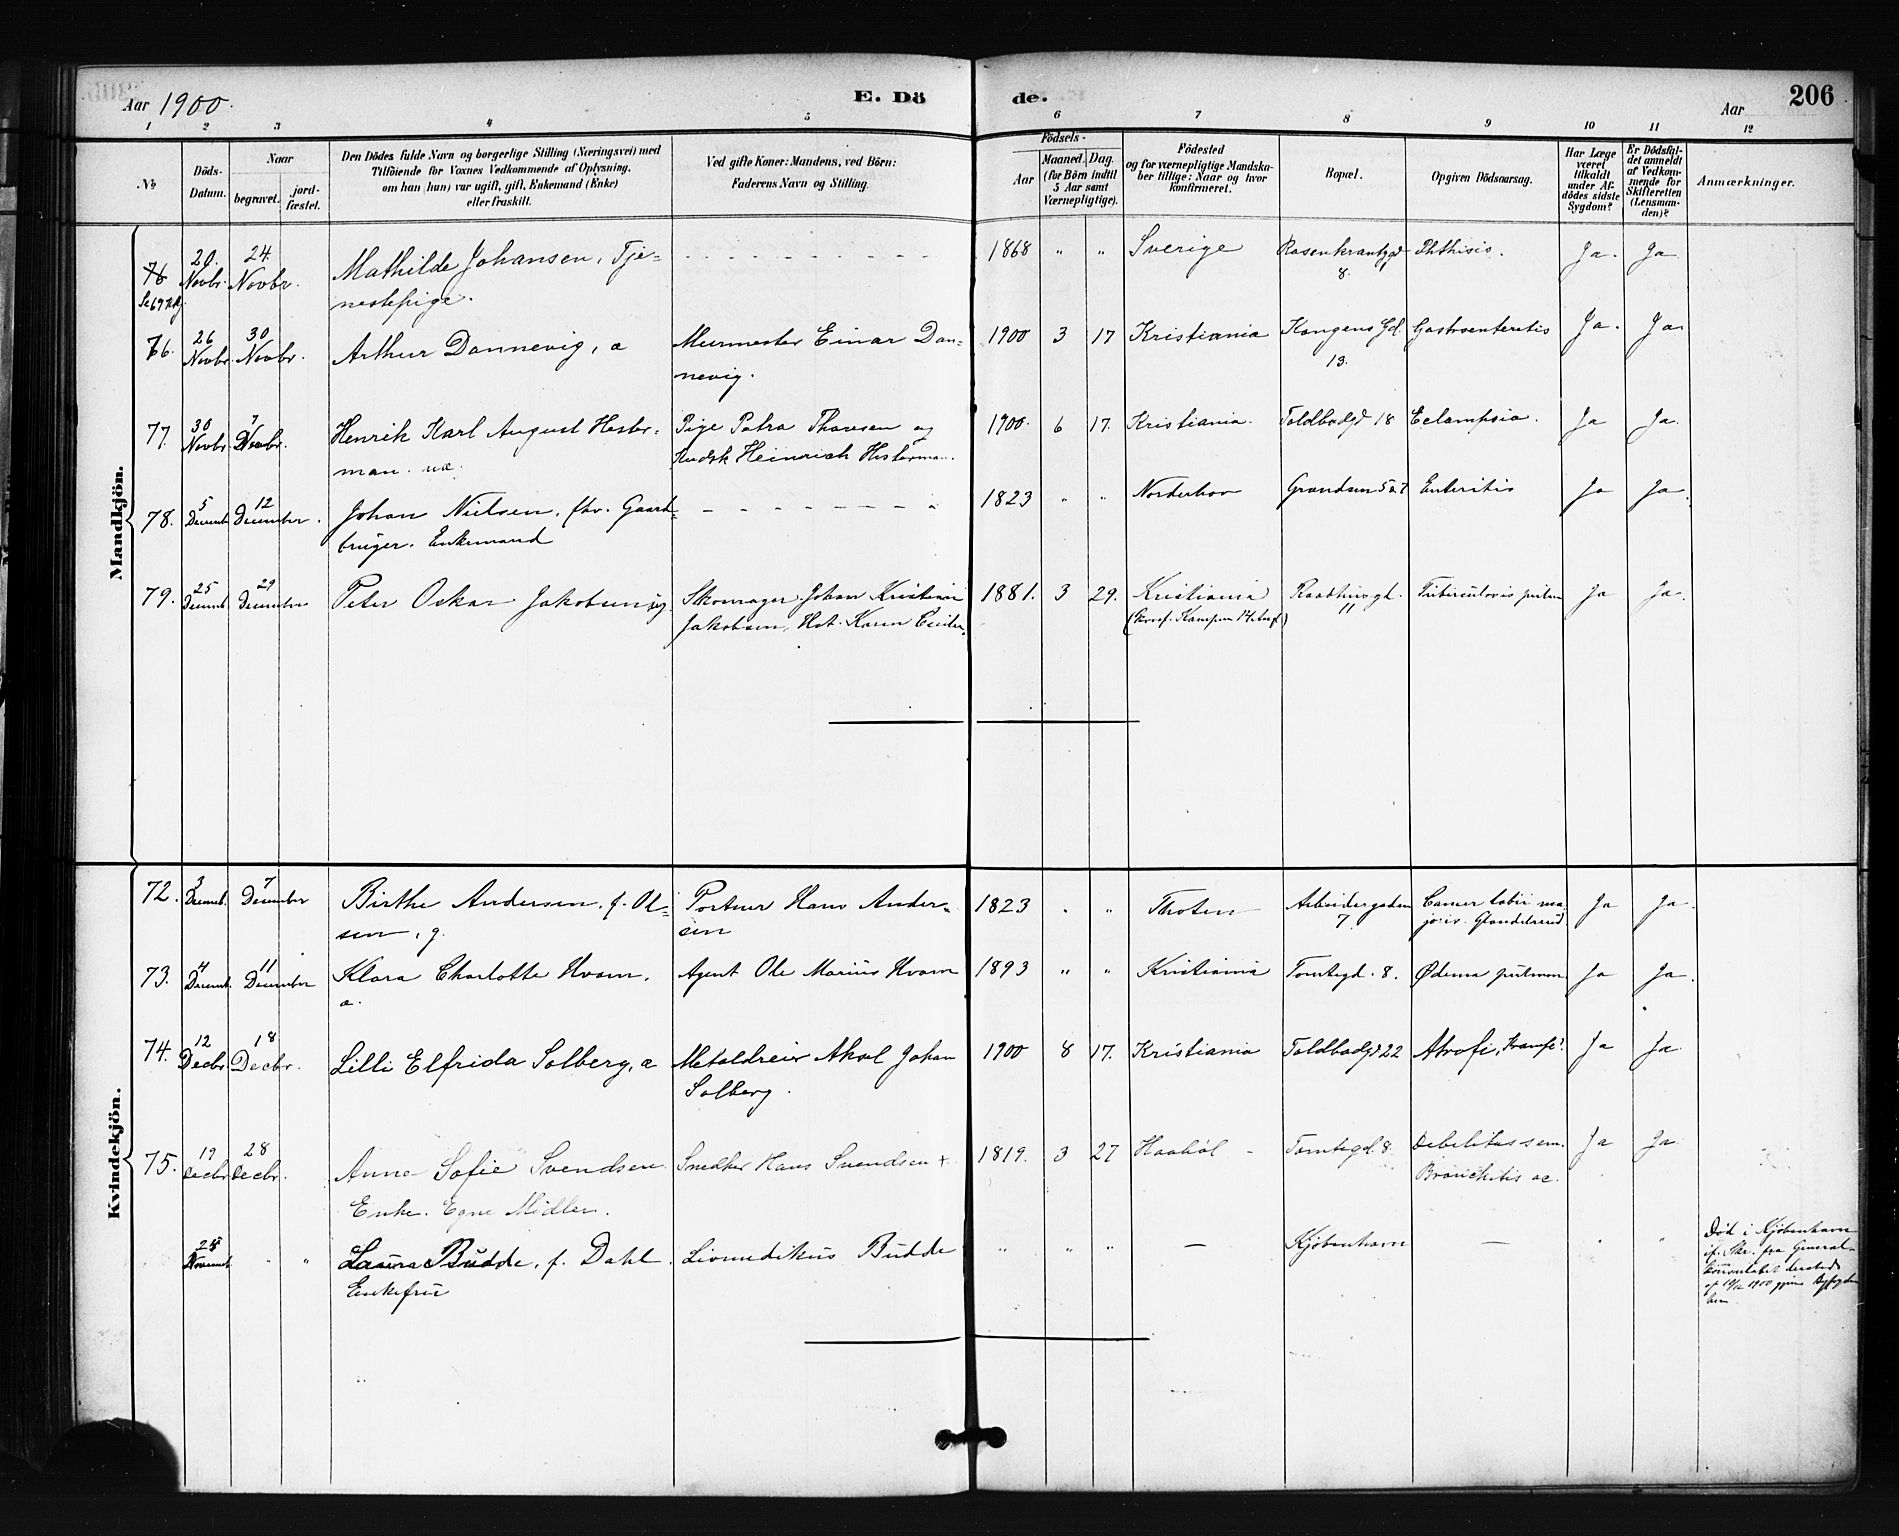 Aar 1900.
E. Dö de.
Aar
206
1 2 3 4 5 6 7 8 9 10 11 12
No
Döds-
Datum.
Naar
begravet.
jord-
fæstet.
Den Dödes fulde Navn og borgerlige Stilling (Næringsvei) med
Tilföiende for Voxnes Vedkommende af Oplysning,
om han (hun) var ugift, gift, Enkemand (Enke)
eller fraskilt.
Ved gifte Koner: Mandens, ved Börn:
Faderens Navn og Stilling.
Födsels-
Aar
Maaned. Dag.
(for Börn indtil
5 Aar samt
Værnepligtige).
Födested
og for værnepligtige Mandska-
ber tillige: Naar og hvor
konfirmeret.
Bopæl.
Opgiven Dödsaarsag.
Har Læge
været
tilkaldt
under Af-
dödes sidste
Sygdom?
Er Dödsfal-
det anmeldt
af Vedkom-
mende for
Skifteretten
(Lensman-
den)?
Anmærkninger.
Mandkjön.
76 20. Novbr. 24. Novbr. Mathilde Johansen, Tje- 1868 " " Sverige Rosenkrantzgd Phthisis. Ja. Ja
nestepige. 8.
76. 26 Novbr 30 Novbr. Arthur Dannevig, æ Murmester Einar Dan- 1900 3 17 Kristiania Kongens Gd. Gastroenteritis Ja. Ja
nevig. 13.
77. 30 Novbr 7 Henrik Karl August Hester- Pige Petra Thoresen og 1900. 6 17. Kristiania. Toldbodgd 18 Eclampsia. Ja Ja.
man. uæ. Heinrich Hesterman.
78. 5 Decemb. 12 December. Johan Nielsen, fhv. Gaard- 1823 " " Norderhov Grændsen 5 Enteritis Ja Ja.
bruger. Enkemand
79. 25 Decemb. 29 December Peter Oskar Jakobsen ug Skomager Johan Kristian 1881. 3 29. Kristiania Raadhusgd. Tuberculosis pulm Ja Ja.
Jakobsen, Hst. Karen (konf. Kampen 11
Kvindekjön.
72. 3 Decemb. 7 December Birthe Andersen, f. Ol- Portner Hans Ander- 1823 " " Thoten Arbeidergaden Cancer labii ma- Ja Ja.
sen, g. sen 7 joris.
73. 4 Decemb. 11 December Klara Charlotte Hvam, Agent Ole Marius Hvam 1893 " " Kristiania Tomtegd. 8. Ødema pulmon Ja Ja.
æ.
74. 12 Decbr. 18 Decbr. Lilli Elfrida Solberg, æ Metaldreier Aksel Johan 1900 8 17. Kristiania Toldbodgd 22 Atrofi, Krampe? Ja Ja.
Solberg.
75. 19 Decbr 28 Decbr. Anne Sofie Svendsen Snedker Hans Svendsen + 1819. 3 27 Haabøl - Tomtegd. 8. Debilitas sen. Ja Ja
Enke. Egne Midler. Bronchitis ac.
Novemb. " " Laura Budde, f. Dahl. Livmedikus Budde " " " — Kjøbenhavn — " "
Enkefrue
Død i Kjøbenhavn
if. Skr. fra General-
konsulatet dersteds
af 10/12 1900 gjen. Byfogden
her.